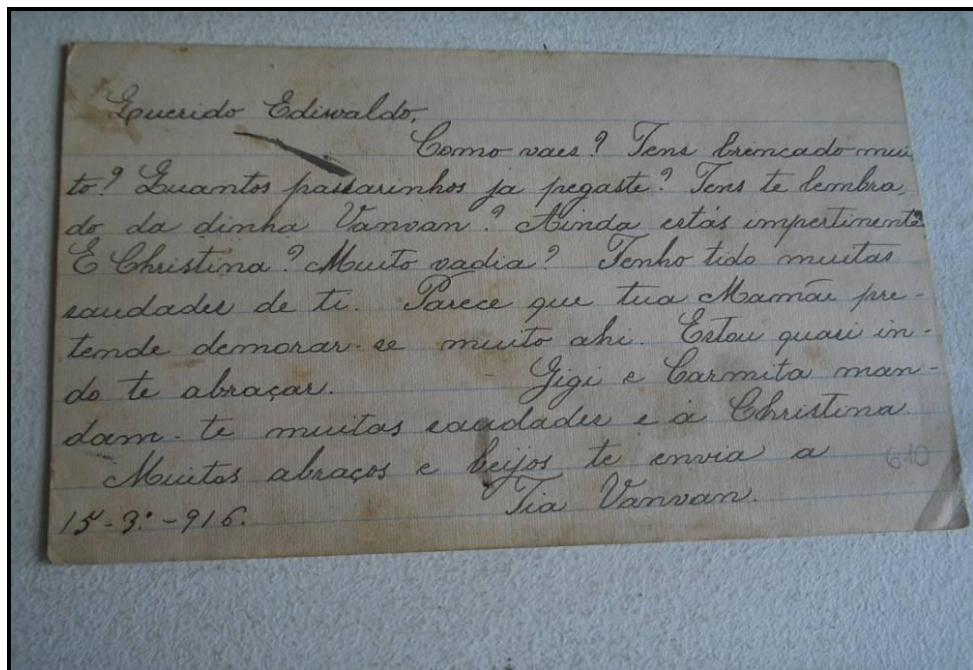 Querido Ediwaldo,
Como vaes? Tens brincado mui
to? Quantos passarinhos ja pegaste? Tens te lembra,
do da dinha Vanvan? Ainda estás impertinente?
E Christina? Muito vadia? Tenho tido muitas
saudades de ti. Parece que tua Mamãe pre-
tende demorar-se muito ahi. Estou quasi in-
do te abraçar. Gigi e Carmita man-
dam-te muitas saudades e á Christina.
Muitos abraços e beijos te envia a
610
Tia Vanvan.
15-3º-916.